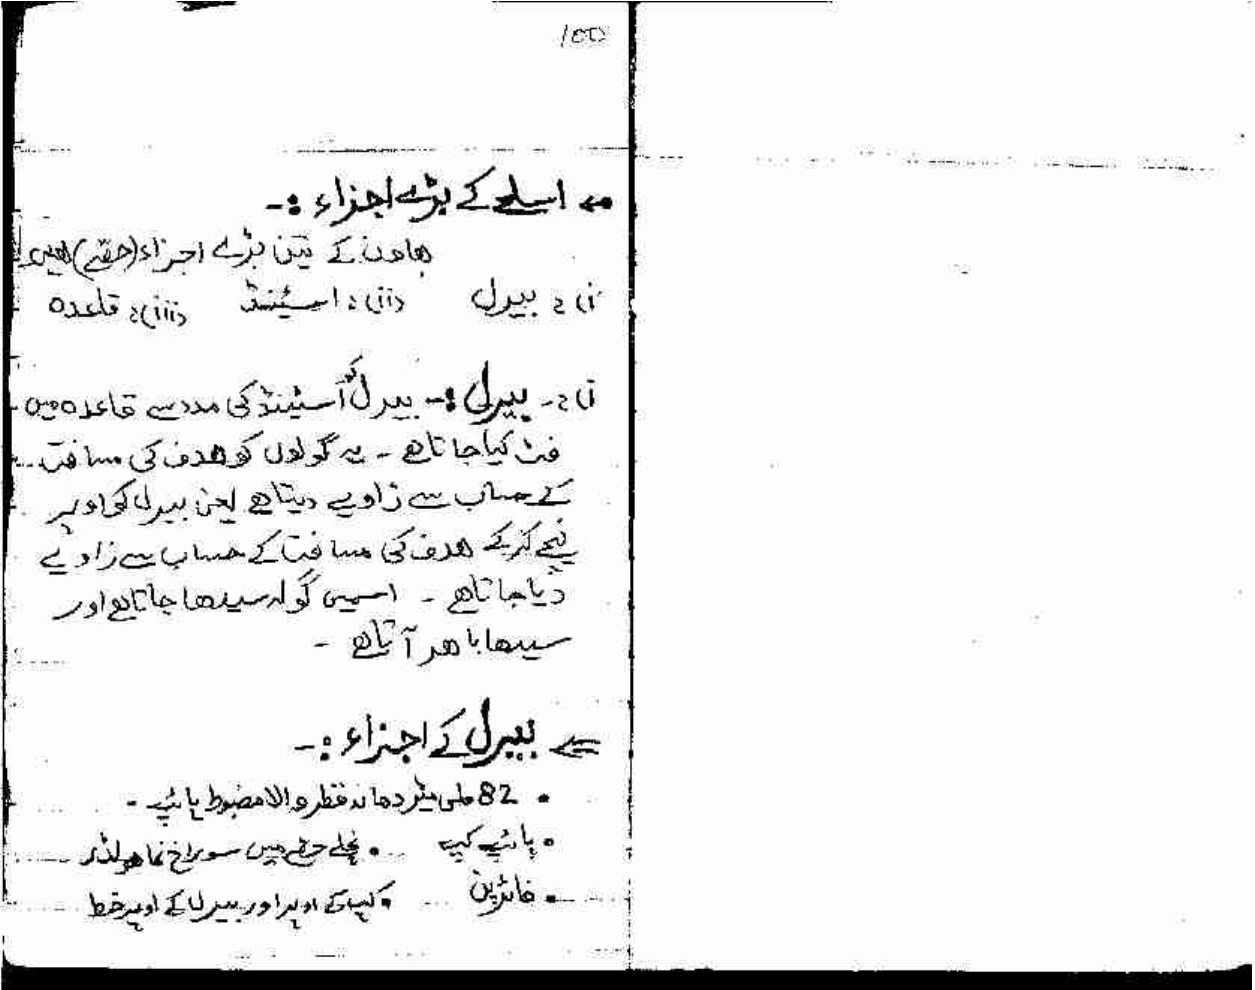 100
اسلحے کے بڑے اجزاء :-
ھاون کے تین بڑے اجزاء (حصّے) ھیں
(i): بیرل (ii): اسٹینڈ (iii): قاعدہ
(i):- بیرل :- بیرل کو اسٹینڈ کی مدد سے قاعدہ میں
فٹ کیا جاتا ھے ۔ یہ گولوں کو ھدف کی مسافت
کے حساب سے زاویے دیتا ھے یعنی بیرل کو اوپر
نیچے کر کے ھدف کی مسافت کے حساب سے زاویے
دیا جاتا ھے ۔ اسمیں گولہ سیدھا جاتا ھے اور
سیدھا باھر آتا ھے ۔
بیرل کے اجزاء :-
• 82 ملی میٹر دھانہ قطر والا مضبوط پائپ ۔
• پائپ کیپ • نچلے حصّے میں سوراخ نما ھولڈر
• فائر پن • کیپ کے اوپر اور بیرل کے اوپر خط